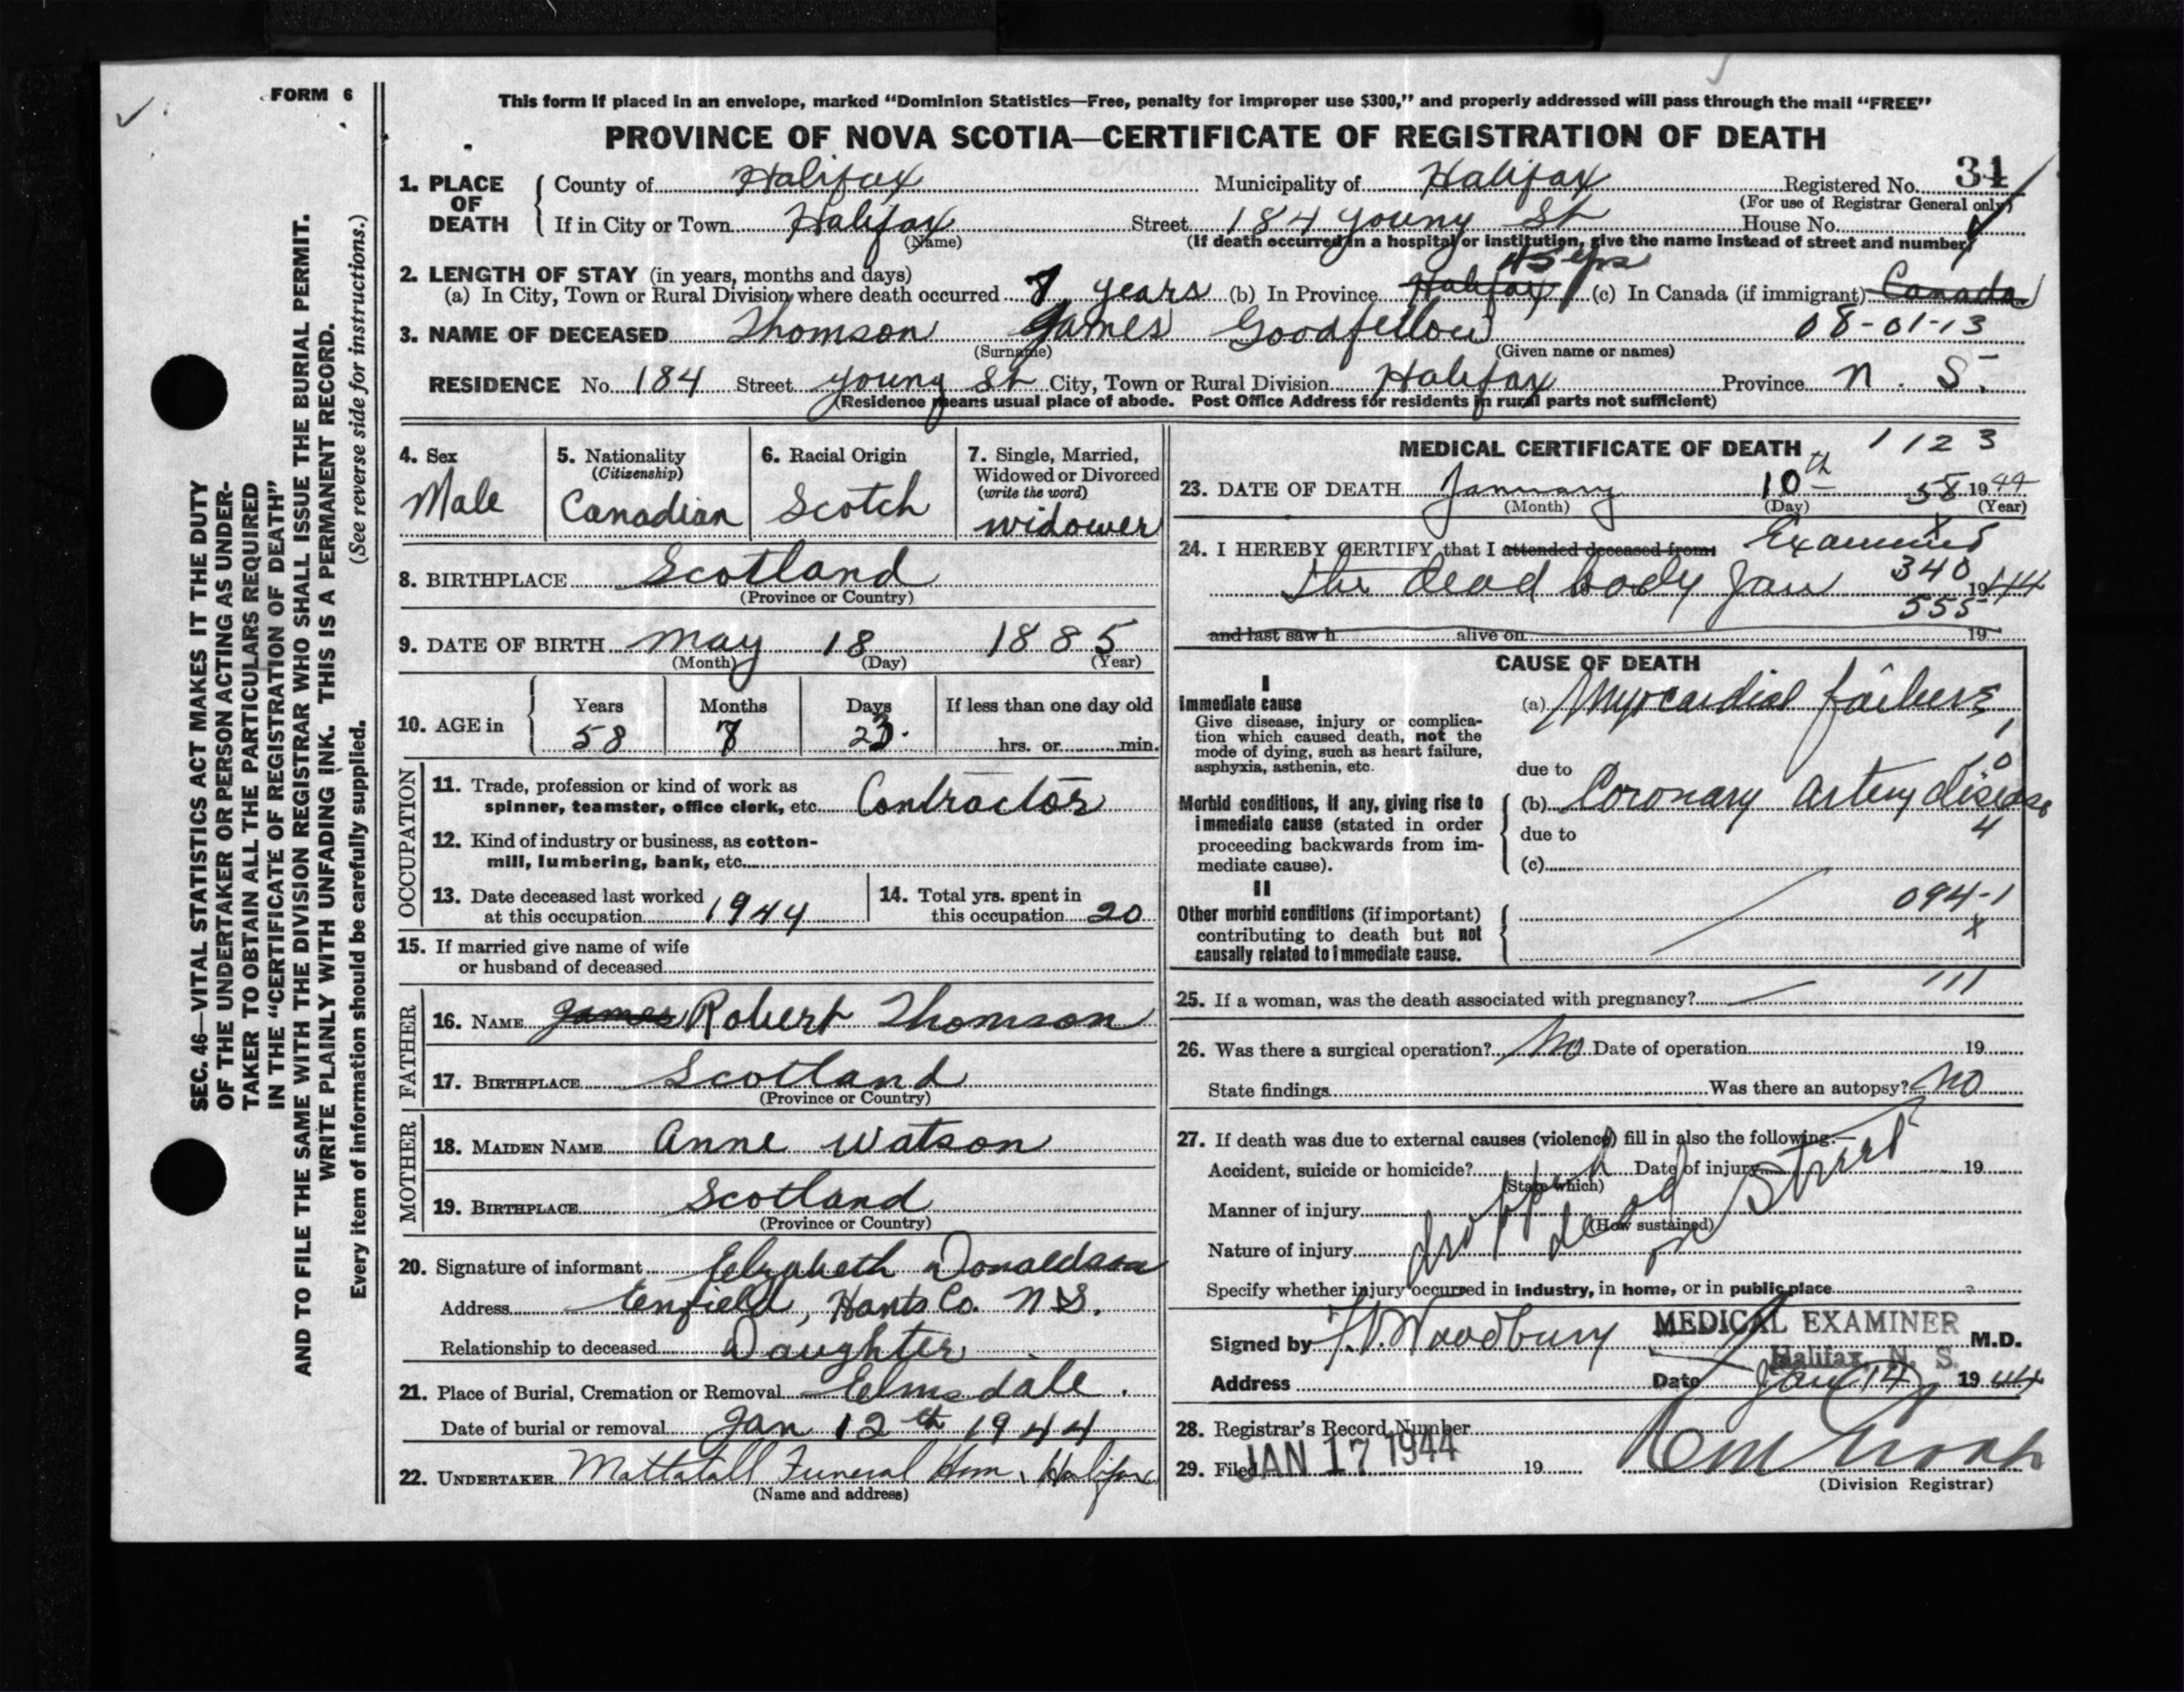 FORM 6
This form if placed in an envelope, marked "Dominion Statistics—Free, penalty for improper use $300," and properly addressed will pass through the mail "FREE"
PROVINCE OF NOVA SCOTIA—CERTIFICATE OF REGISTRATION OF DEATH
1. PLACE OF DEATH County of Halifax Municipality of Halifax Registered No. 31
(For use of Registrar General only)
If in City or Town Halifax Street 184 Young St House No.
(Name) (If death occurred in a hospital or institution, give the name instead of street and number)
2. LENGTH OF STAY (in years, months and days) 45 yrs
(a) In City, Town or Rural Division where death occurred 7 years (b) In Province Halifax (c) In Canada (if immigrant) Canada
3. NAME OF DECEASED Thomson James Goodfellow 08-01-13
(Surname) (Given name or names)
RESIDENCE No. 184 Street Young St City, Town or Rural Division Halifax Province N. S.
(Residence means usual place of abode. Post Office Address for residents in rural parts not sufficient)
4. Sex Male
5. Nationality (Citizenship) Canadian
6. Racial Origin Scotch
7. Single, Married, Widowed or Divorced (write the word) widower
8. BIRTHPLACE Scotland
(Province or Country)
9. DATE OF BIRTH May 18 1885
(Month) (Day) (Year)
10. AGE in Years Months Days If less than one day old
58 7 23. hrs. or min.
OCCUPATION
11. Trade, profession or kind of work as
spinner, teamster, office clerk, etc. Contractor
12. Kind of industry or business, as cotton-
mill, lumbering, bank, etc.
13. Date deceased last worked
at this occupation 1944
14. Total yrs. spent in
this occupation 20
15. If married give name of wife
or husband of deceased
FATHER
16. NAME James Robert Thomson
17. BIRTHPLACE Scotland
(Province or Country)
MOTHER
18. MAIDEN NAME Anne Watson
19. BIRTHPLACE Scotland
(Province or Country)
20. Signature of informant Elizabeth Donaldson
Address Enfield, Hants Co. N.S.
Relationship to deceased Daughter
21. Place of Burial, Cremation or Removal Elmsdale.
Date of burial or removal Jan 12th 1944
22. UNDERTAKER Mattatall Funeral Hom, Halifax
(Name and address)
MEDICAL CERTIFICATE OF DEATH 1123
23. DATE OF DEATH January 10th 58 1944
(Month) (Day) (Year)
X
24. I HEREBY CERTIFY that I attended deceased from: Examined
the dead body Jan 340 1944
555
and last saw h alive on 19
CAUSE OF DEATH
I
Immediate cause
Give disease, injury or complica-
tion which caused death, not the
mode of dying, such as heart failure,
asphyxia, asthenia, etc.
(a) Myocardial failure
1
10
due to
Morbid conditions, if any, giving rise to
immediate cause (stated in order
proceeding backwards from im-
mediate cause).
(b) Coronary artery disease
due to 4
(c)
II
Other morbid conditions (if important)
contributing to death but not
causally related to immediate cause.
094-1
X
25. If a woman, was the death associated with pregnancy? 111
26. Was there a surgical operation? No Date of operation 19
State findings Was there an autopsy? No
27. If death was due to external causes (violence) fill in also the following:—
Accident, suicide or homicide? Date of injury 19
(State which)
Manner of injury
(How sustained)
Nature of injury
dropped dead on Street
Specify whether injury occurred in industry, in home, or in public place
Signed by Woodbury MEDICAL EXAMINER M.D.
Halifax, N. S.
Address Date Jan 14 1944
28. Registrar's Record Number
29. Filed JAN 17 1944 19
(Division Registrar)
SEC. 46—VITAL STATISTICS ACT MAKES IT THE DUTY
OF THE UNDERTAKER OR PERSON ACTING AS UNDER-
TAKER TO OBTAIN ALL THE PARTICULARS REQUIRED
IN THE "CERTIFICATE OF REGISTRATION OF DEATH"
AND TO FILE THE SAME WITH THE DIVISION REGISTRAR WHO SHALL ISSUE THE BURIAL PERMIT.
WRITE PLAINLY WITH UNFADING INK. THIS IS A PERMANENT RECORD.
Every item of information should be carefully supplied. (See reverse side for instructions.)